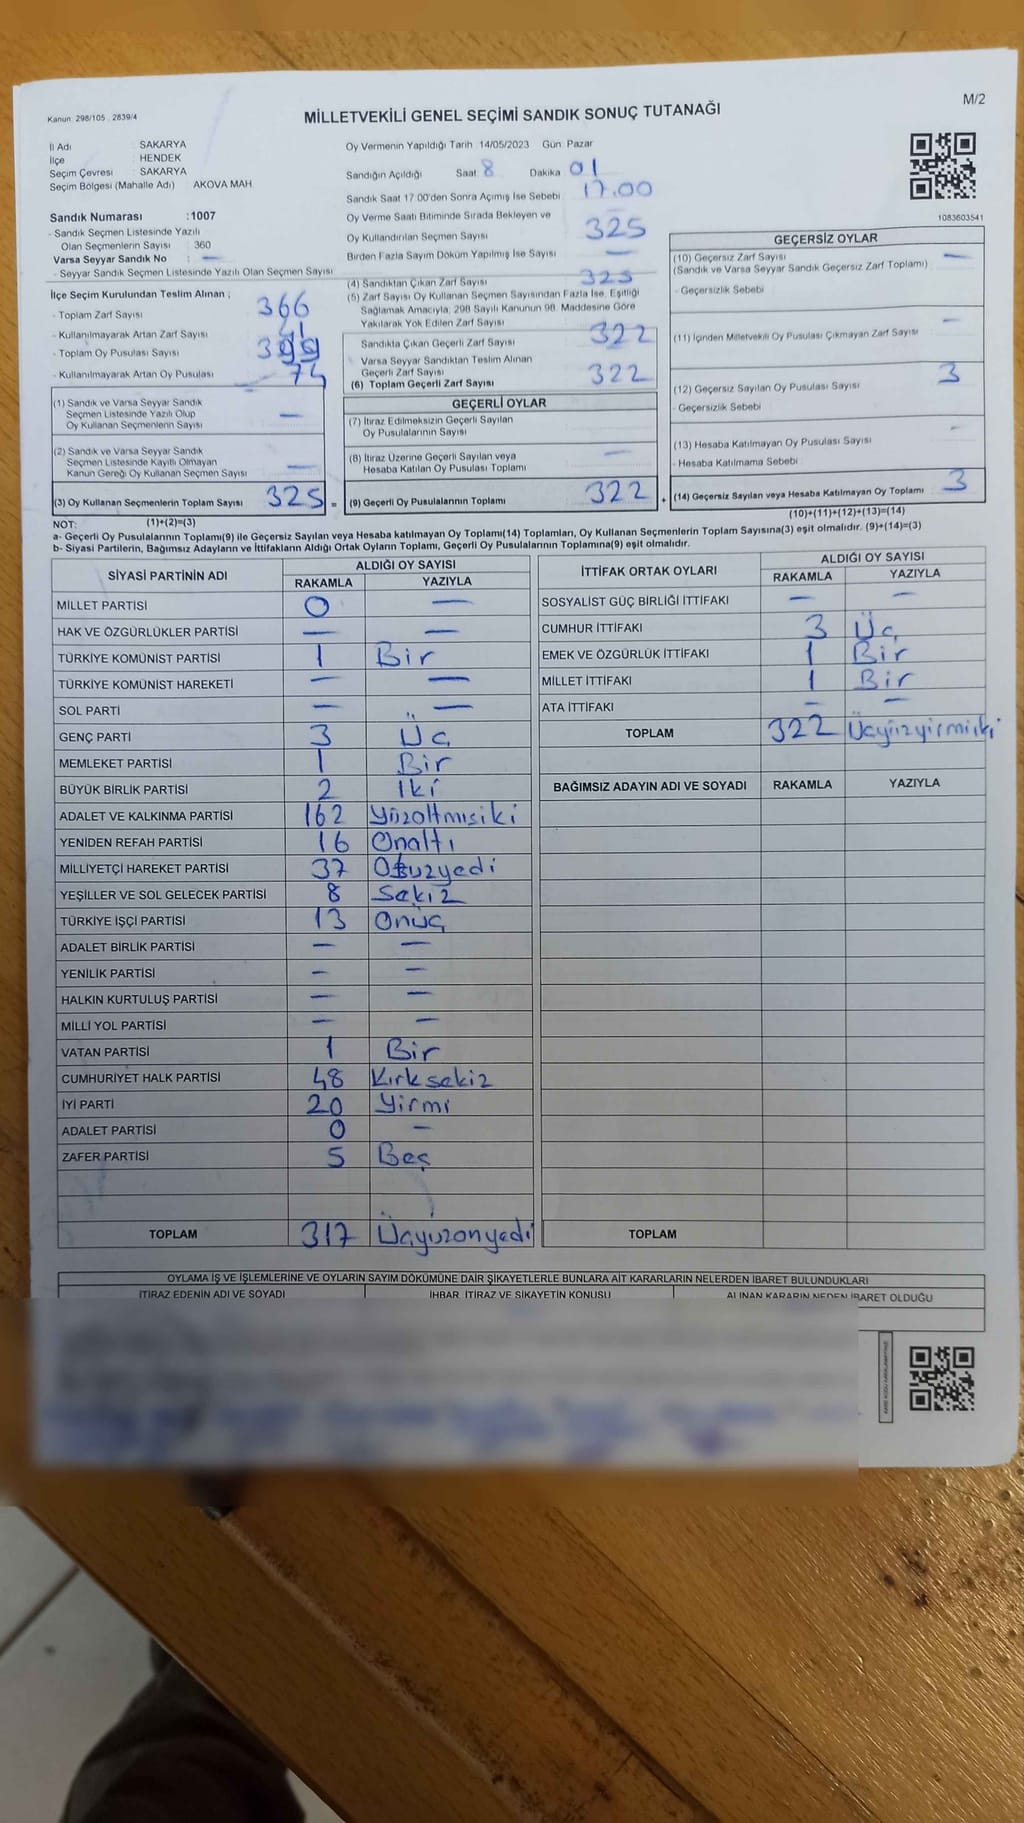 Kanun: 298/105 , 2839/4
MİLLETVEKİLİ GENEL SEÇİMİ SANDIK SONUÇ TUTANAĞI
M/2
İl Adı SAKARYA
İlçe HENDEK
Seçim Çevresi SAKARYA
Seçim Bölgesi (Mahalle Adı) AKOVA MAH
Sandık Numarası :1007
- Sandık Seçmen Listesinde Yazılı
Olan Seçmenlerin Sayısı 360
Varsa Seyyar Sandık No : —
- Seyyar Sandık Seçmen Listesinde Yazılı Olan Seçmen Sayısı
İlçe Seçim Kurulundan Teslim Alınan ;
- Toplam Zarf Sayısı 366
- Kullanılmayarak Artan Zarf Sayısı 41
- Toplam Oy Pusulası Sayısı
- Kullanılmayarak Artan Oy Pusulası 74
(1) Sandık ve Varsa Seyyar Sandık
Seçmen Listesinde Yazılı Olup
Oy Kullanan Seçmenlerin Sayısı —
(2) Sandık ve Varsa Seyyar Sandık
Seçmen Listesinde Kayıtlı Olmayan
Kanun Gereği Oy Kullanan Seçmen Sayısı —
(3) Oy Kullanan Seçmenlerin Toplam Sayısı 325 =
Oy Vermenin Yapıldığı Tarih 14/05/2023 Gün Pazar
Sandığın Açıldığı Saat 8 Dakika 01
Sandık Saat 17.00'den Sonra Açımış İse Sebebi 17.00
Oy Verme Saati Bitiminde Sırada Bekleyen ve —
Oy Kullandırılan Seçmen Sayısı 325
Birden Fazla Sayım Döküm Yapılmış İse Sayısı —
(4) Sandıktan Çıkan Zarf Sayısı 325
(5) Zarf Sayısı Oy Kullanan Seçmen Sayısından Fazla İse, Eşitliği
Sağlamak Amacıyla, 298 Sayılı Kanunun 98. Maddesine Göre
Yakılarak Yok Edilen Zarf Sayısı
Sandıkta Çıkan Geçerli Zarf Sayısı 322
Varsa Seyyar Sandıktan Teslim Alınan
Geçerli Zarf Sayısı
(6) Toplam Geçerli Zarf Sayısı 322
GEÇERLİ OYLAR
(7) İtiraz Edilmeksizin Geçerli Sayılan
Oy Pusulalarının Sayısı
(8) İtiraz Üzerine Geçerli Sayılan veya
Hesaba Katılan Oy Pusulası Toplamı —
(9) Geçerli Oy Pusulalarının Toplamı 322 +
1083603541
GEÇERSİZ OYLAR
(10) Geçersiz Zarf Sayısı —
(Sandık ve Varsa Seyyar Sandık Geçersiz Zarf Toplamı)
- Geçersizlik Sebebi
(11) İçinden Milletvekili Oy Pusulası Çıkmayan Zarf Sayısı —
(12) Geçersiz Sayılan Oy Pusulası Sayısı 3
- Geçersizlik Sebebi
(13) Hesaba Katılmayan Oy Pusulası Sayısı —
- Hesaba Katılmama Sebebi
(14) Geçersiz Sayılan veya Hesaba Katılmayan Oy Toplamı 3
(10)+(11)+(12)+(13)=(14)
NOT: (1)+(2)=(3)
a- Geçerli Oy Pusulalarının Toplamı(9) ile Geçersiz Sayılan veya Hesaba katılmayan Oy Toplamı(14) Toplamları, Oy Kullanan Seçmenlerin Toplam Sayısına(3) eşit olmalıdır. (9)+(14)=(3)
b- Siyasi Partilerin, Bağımsız Adayların ve İttifakların Aldığı Ortak Oyların Toplamı, Geçerli Oy Pusulalarının Toplamına(9) eşit olmalıdır.
SİYASİ PARTİNİN ADI ALDIĞI OY SAYISI
RAKAMLA YAZIYLA
MİLLET PARTİSİ 0 —
HAK VE ÖZGÜRLÜKLER PARTİSİ — —
TÜRKİYE KOMÜNİST PARTİSİ 1 Bir
TÜRKİYE KOMÜNİST HAREKETİ — —
SOL PARTİ — —
GENÇ PARTİ 3 Üç
MEMLEKET PARTİSİ 1 Bir
BÜYÜK BİRLİK PARTİSİ 2 İki
ADALET VE KALKINMA PARTİSİ 162 Yüzaltmışiki
YENİDEN REFAH PARTİSİ 16 Onaltı
MİLLİYETÇİ HAREKET PARTİSİ 37 Otuzyedi
YEŞİLLER VE SOL GELECEK PARTİSİ 8 Sekiz
TÜRKİYE İŞÇİ PARTİSİ 13 Onüç
ADALET BİRLİK PARTİSİ — —
YENİLİK PARTİSİ — —
HALKIN KURTULUŞ PARTİSİ — —
MİLLİ YOL PARTİSİ — —
VATAN PARTİSİ 1 Bir
CUMHURİYET HALK PARTİSİ 48 Kırksekiz
İYİ PARTİ 20 Yirmi
ADALET PARTİSİ 0 —
ZAFER PARTİSİ 5 Beş
TOPLAM 317 Üçyüzonyedi
İTTİFAK ORTAK OYLARI ALDIĞI OY SAYISI
RAKAMLA YAZIYLA
SOSYALİST GÜÇ BİRLİĞİ İTTİFAKI — —
CUMHUR İTTİFAKI 3 Üç
EMEK VE ÖZGÜRLÜK İTTİFAKI 1 Bir
MİLLET İTTİFAKI 1 Bir
ATA İTTİFAKI — —
TOPLAM 322 Üçyüzyirmiiki
BAĞIMSIZ ADAYIN ADI VE SOYADI RAKAMLA YAZIYLA
TOPLAM
OYLAMA İŞ VE İŞLEMLERİNE VE OYLARIN SAYIM DÖKÜMÜNE DAİR ŞİKAYETLERLE BUNLARA AİT KARARLARIN NELERDEN İBARET BULUNDUKLARI
İTİRAZ EDENİN ADI VE SOYADI İHBAR, İTİRAZ VE ŞİKAYETİN KONUSU ALINAN KARARIN NEDEN İBARET OLDUĞU